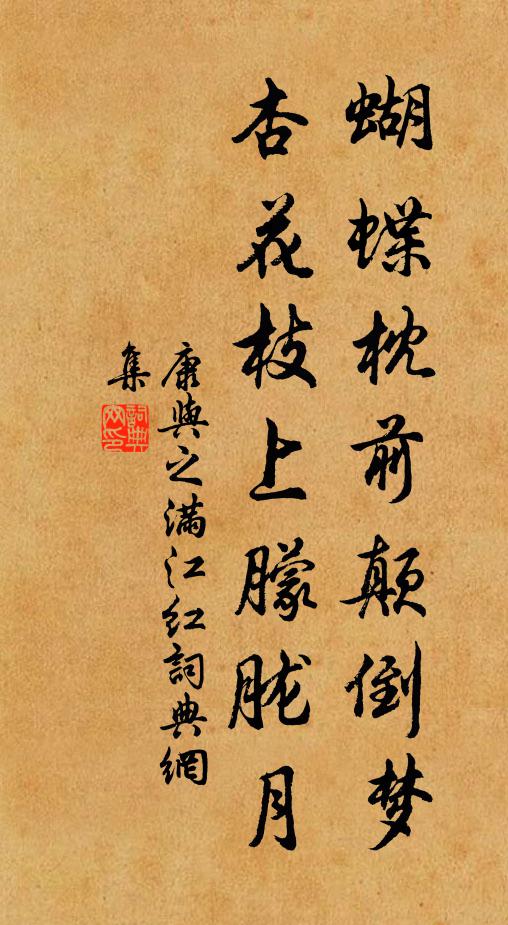 蝴蝶枕前颠倒梦
杏花枝上朦胧月
康與之满江红詞典網
集
詞典网印